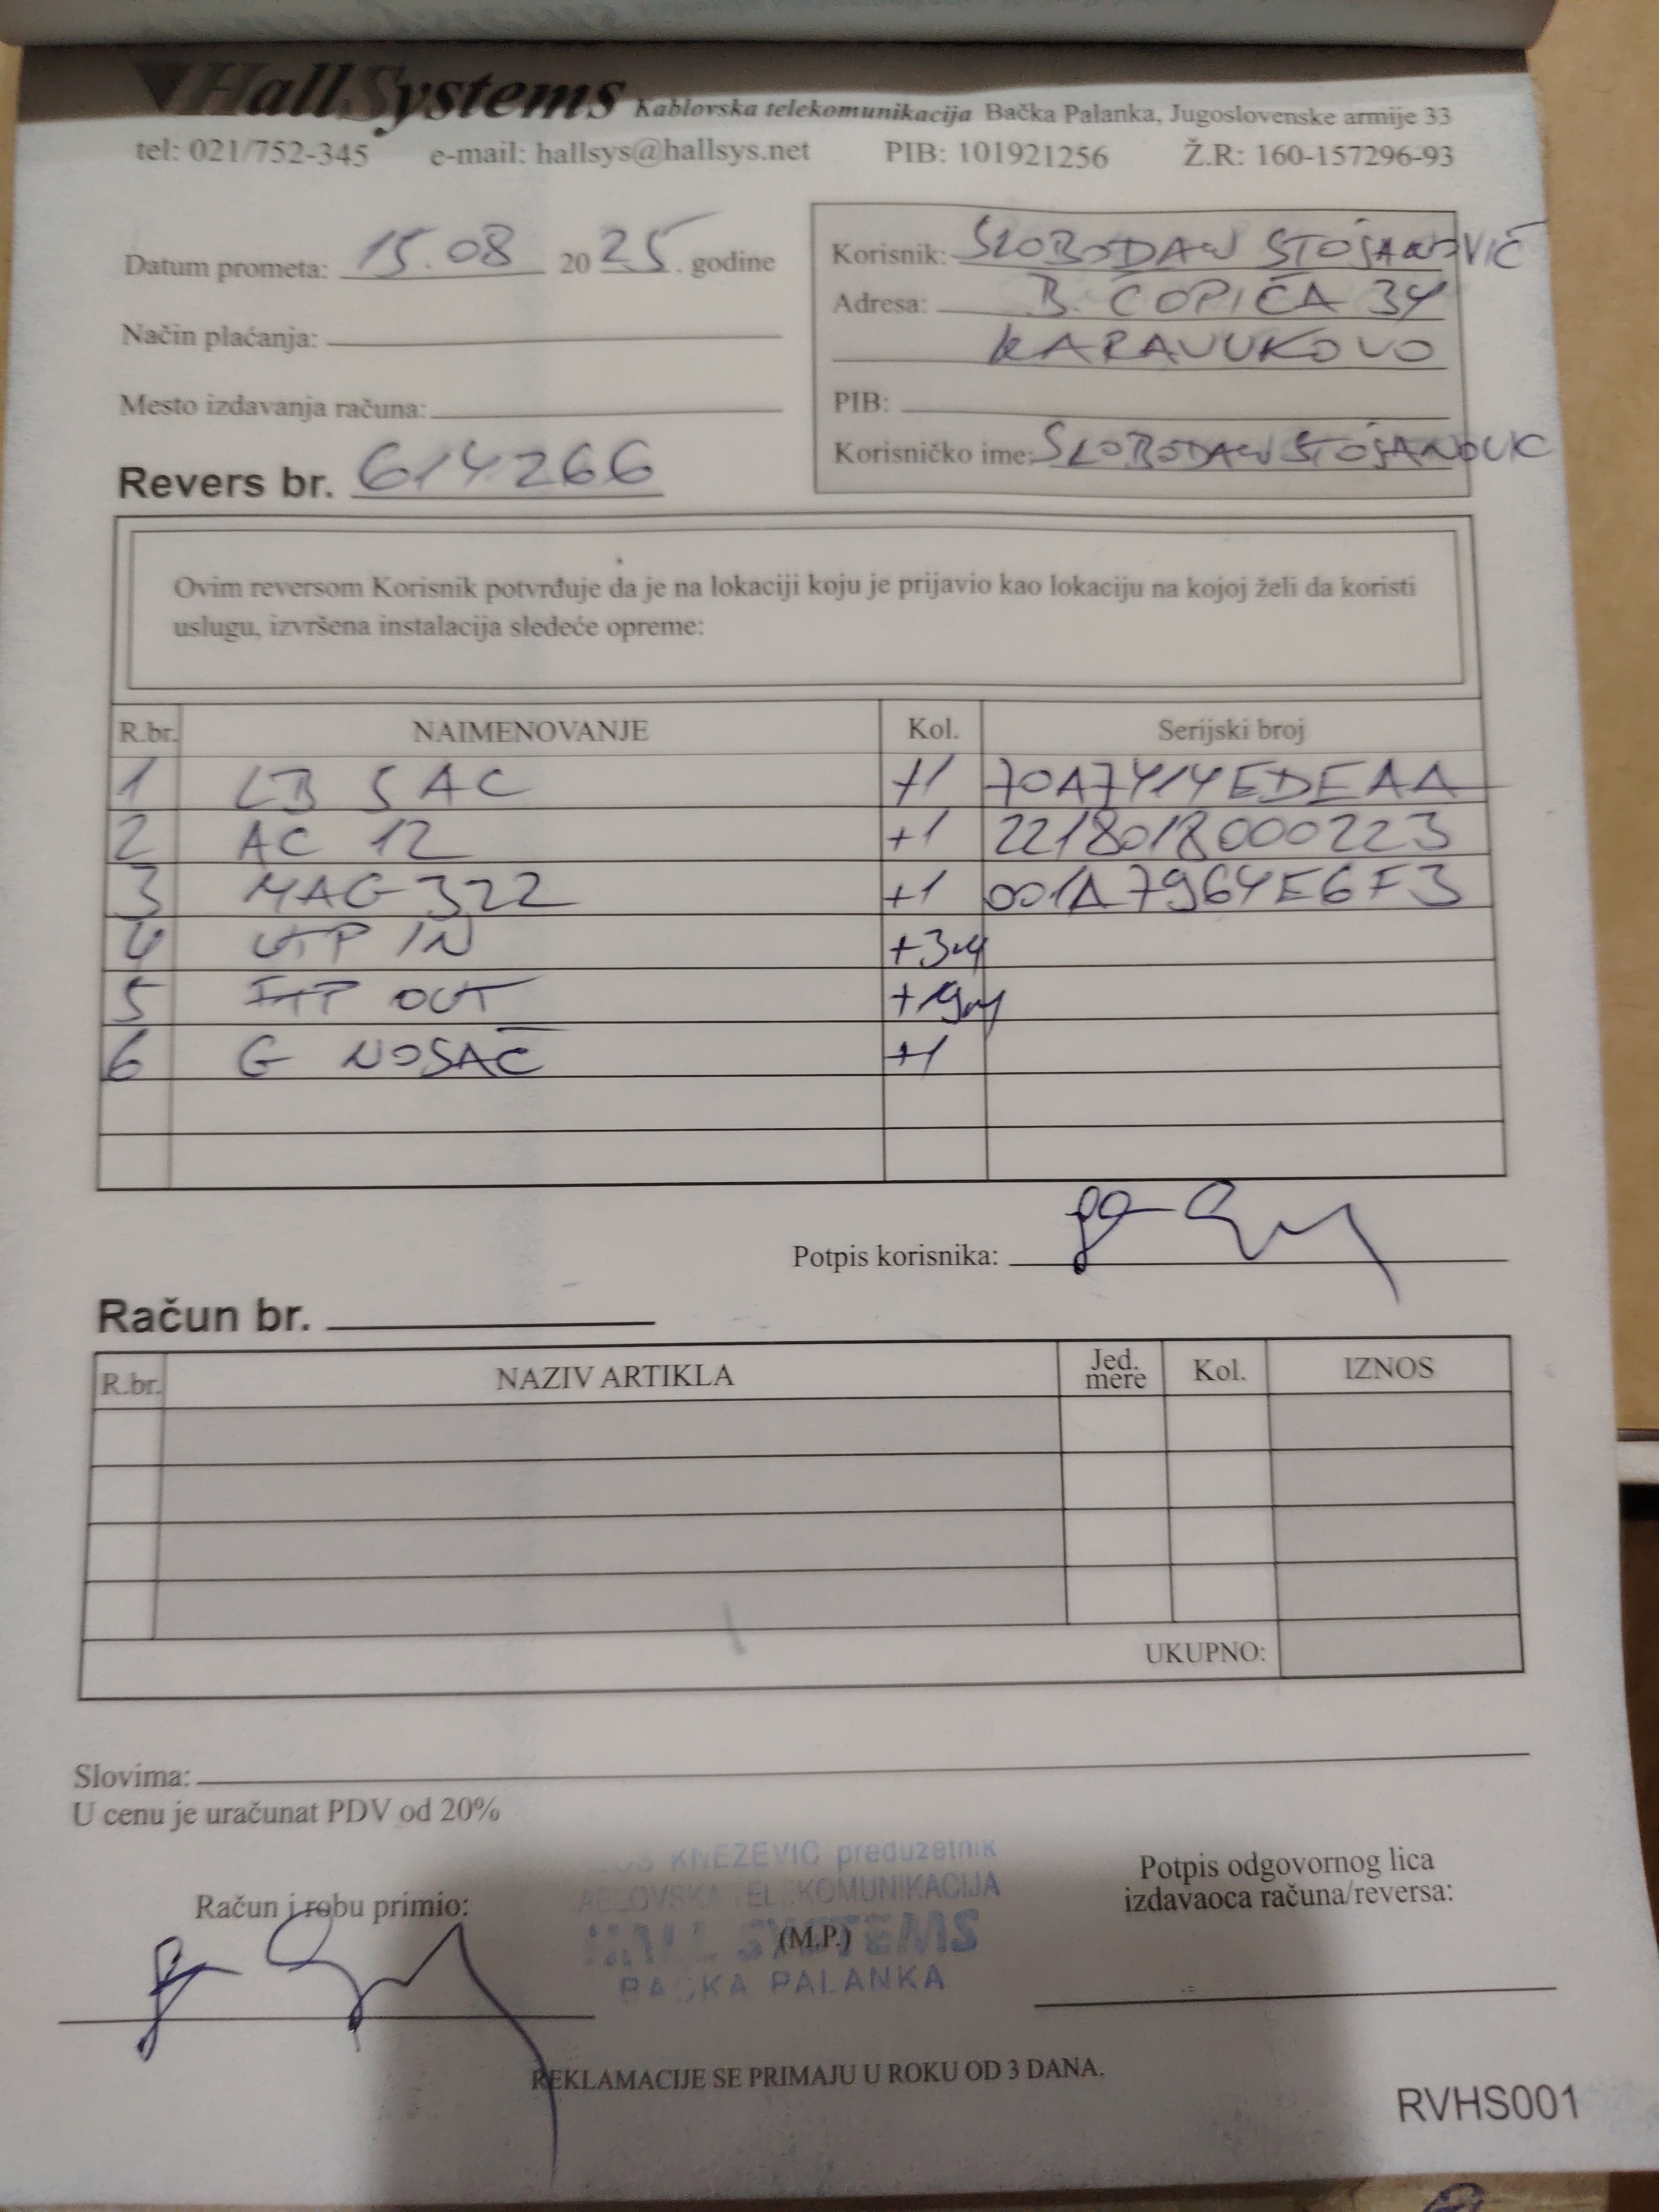 HallSystems Kablovska telekomunikacija Bačka Palanka, Jugoslovenske armije 33
tel: 021/752-345 e-mail: hallsys@hallsys.net PIB: 101921256 Ž.R: 160-157296-93
Datum prometa: 15.08 2025. godine
Način plaćanja:
Mesto izdavanja računa:
Revers br. 614266
Korisnik: SLOBODAN STOJANOVIĆ
Adresa: B. ĆOPIĆA 34
KARAVUKOVO
PIB:
Korisničko ime: SLOBODAN STOJANOVIC
Ovim reversom Korisnik potvrđuje da je na lokaciji koju je prijavio kao lokaciju na kojoj želi da koristi
uslugu, izvršena instalacija sledeće opreme:
R.br. NAIMENOVANJE Kol. Serijski broj
1 LB 5AC +1 70A7414EDEAA
2 AC 12 +1 2218018000223
3 MAG 322 +1 001A7964E6F3
4 UTP IN +3m
5 FTP OUT +19m
6 G NOSAČ +1
Potpis korisnika:
Račun br.
R.br. NAZIV ARTIKLA Jed. mere Kol. IZNOS
UKUPNO:
Slovima:
U cenu je uračunat PDV od 20%
KNEZEVIC preduzetnik
ABLOVSKA TELEKOMUNIKACIJA
HALL SYSTEMS
BACKA PALANKA
Račun i robu primio:
(M.P.)
Potpis odgovornog lica
izdavaoca računa/reversa:
REKLAMACIJE SE PRIMAJU U ROKU OD 3 DANA.
RVHS001